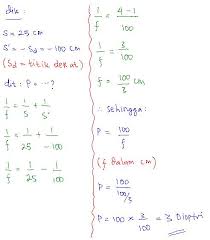 dik:
S = 25 cm
S' = -Sd = -100 cm
(Sd = titik dekat)
dit: P = ...?
1/f = 1/S + 1/S'
1/f = 1/25 + 1/-100
1/f = 1/25 - 1/100
1/f = 4-1/100
1/f = 3/100
f = 100/3 cm
∴ Sehingga:
P = 100/f
(f dalam cm)
P = 100/100/3
P = 100 × 3/100 = 3 Dioptri